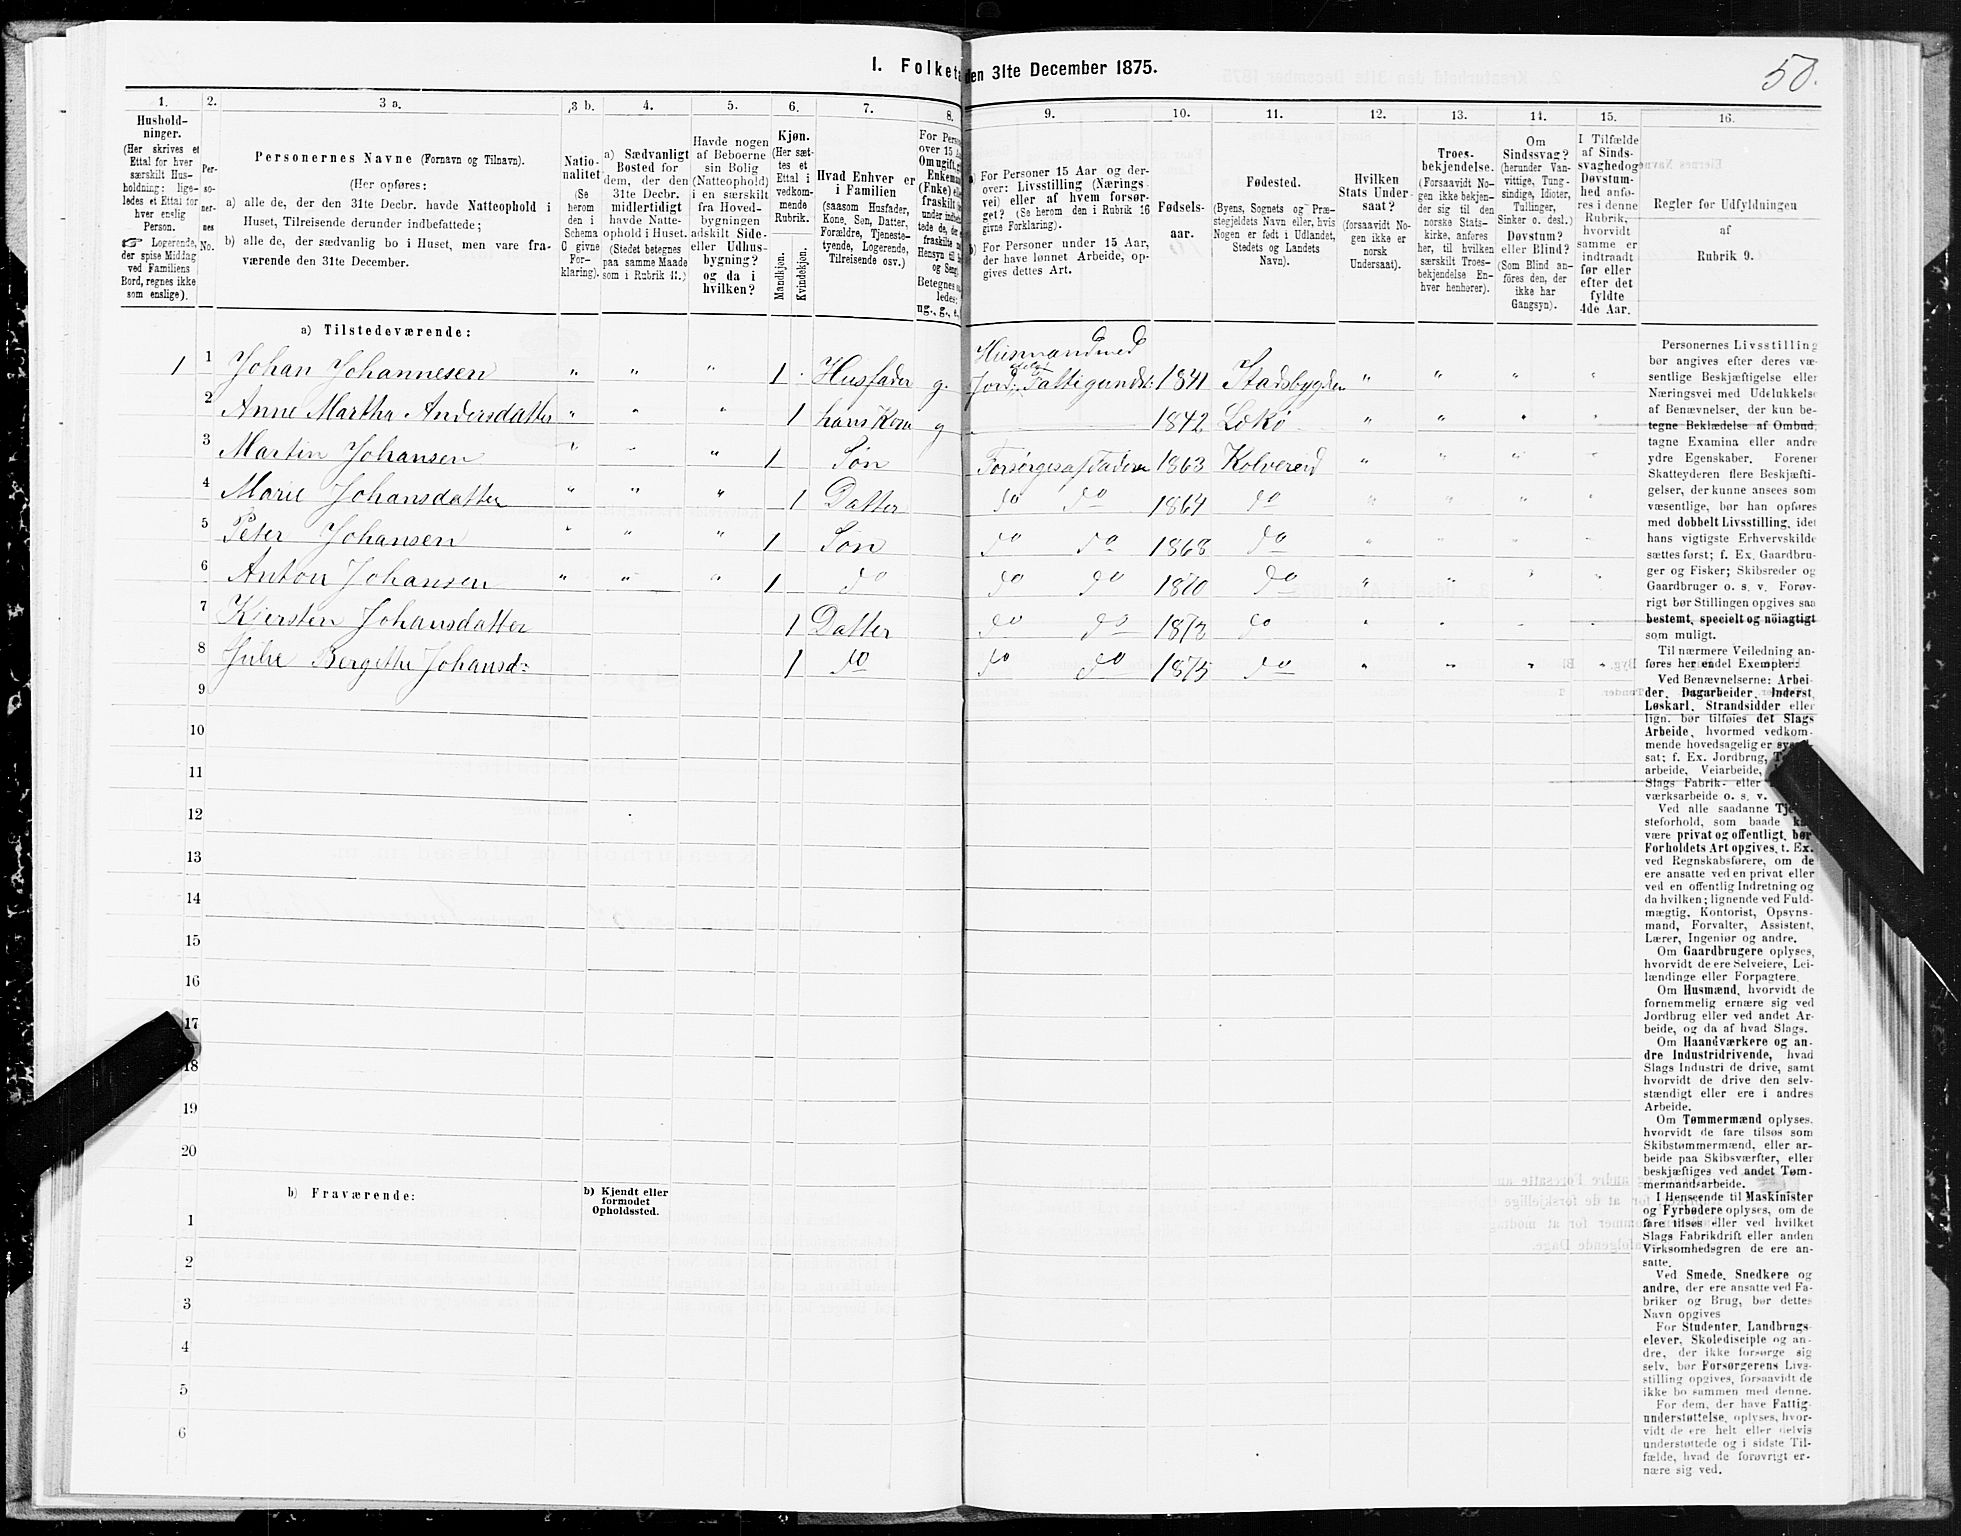 I. Folketæ den 31te December 1875.
50.
1.
Hushold-
ninger.
(Her skrives et
Ettal for hver
særskilt Hus-
holdning; lige-
ledes et Ettal for
hver enslig
Person.
☞ Logerende,
der spise Middag
ved Familiens
Bord, regnes ikke
som enslige).
2.
Per-
so-
ner-
nes
No.
3 a.
Personernes Navne (Fornavn og Tilnavn).
(Her opføres:
a) alle de, der den 31te Decbr. havde Natteophold i
Huset, Tilreisende derunder indbefattede;
b) alle de, der sædvanlig bo i Huset, men vare fra-
værende den 31te December.
3 b.
Natio-
nalitet
(Se
herom
den i
Schema
C givne
For-
klaring).
4.
a) Sædvanligt
Bosted for
dem, der den
31te Decbr.
midlertidigt
havde Natte-
ophold i Huset.
(Stedet betegnes
paa samme Maade
som i Rubrik 11.)
5.
Havde nogen
af Beboerne
sin Bolig
(Natteophold)
i en særskilt
fra Hoved-
bygningen
adskilt Side-
eller Udhus-
bygning?
og da i
hvilken?
6.
Kjøn.
(Her sæt-
tes et
Ettal i
vedkom-
mende
Rubrik.
Mandkjøn.
Kvindekjøn.
7.
Hvad Enhver er
i Familien
(saasom Husfader,
Kone, Søn, Datter,
Forældre, Tjeneste-
tyende, Logerende,
Tilreisende osv.)
8.
For Perso
over 15 Aa
Omugift, g
Enkeman
(Fnke) elle
fraskilt
under indbe
tede de, de
fraskilte
Hensyn til b
og Seng
Betegnes s
ledes:
ug., g., e.,
9.
a) For Personer 15 Aar og der-
over: Livsstilling (Nærings-
vei) eller af hvem forsør-
get? (Se herom den i Rubrik 16
givne Forklaring).
b) For Personer under 15 Aar,
der have lønnet Arbeide, op-
gives dettes Art.
10.
Fødsels-
aar.
11.
Fødested.
(Byens, Sognets og Præ-
stegjeldets Navn eller, hvis
Nogen er født i Udlandet,
Stedets og Landets
Navn).
12.
Hvilken
Stats Under-
saat?
(forsaavidt No-
gen ikke er
norsk
Undersaat).
13.
Troes-
bekjendelse.
(Forsaavidt No-
gen ikke bekjen-
der sig til den
norske Stats-
kirke, anføres
her, til hvilken
særskilt Troes-
bekjendelse En-
hver henhører).
14.
Om
Sindssvag?
(herunder Van-
vittige, Tung-
sindige, Idioter,
Tullinger,
Sinker o. desl.)
Døvstum?
eller Blind?
(Som Blind an-
føres den, der
ikke har
Gangsyn).
15.
I Tilfælde
af Sinds-
svaghed og
Døvstum-
hed anfø-
res i denne
Rubrik,
hvorvidt
samme er
indtraadt
før eller
efter det
fyldte
4de Aar.
16.
Regler før Udfyldningen
af
Rubrik 9.
a) Tilstedeværende:
1 1 Johan Johannesen " " " 1 . Husfader g. Husmand med Jord; Fattigundst: 1841 Stadsbygden " " " "
2 Anne Martha Andersdatter " " " 1 hans Kone g 1842 Lekø " " " "
3 Martin Johansen " " " 1 Søn Forsørges af Faderen 1863 Kolvereid " " " "
4 Marie Johansdatter " " " 1 Datter do do 1864 do " " " "
5 Peter Johansen " " " 1 Søn do do 1868 do " " " "
6 Anton Johansen " " " 1 do do do 1870 do " " " "
7 Kjersten Johansdatter 1 Datter do do 1873 do " " " "
8 Julie Bergithe Johansd: 1 do do do 1875 do " " " "
9
10
11
12
13
14
15
16
17
18
19
20
b) Fraværende:
b) Kjendt eller
formodet
Opholdssted.
1
2
3
4
5
6
Personernes Livsstilling
bør angives efter deres væ-
sentlige Beskjæftigelse eller
Næringsvei med Udelukkelse
af Benævnelser, der kun be-
tegne Beklædelse af Ombud,
tagne Examina eller andre
ydre Egenskaber. Forener
Skatteyderen flere Beskjæfti-
gelser, der kunne ansees som
væsentlige, bør han opføres
med dobbelt Livsstilling, idet
hans vigtigste Erhvervskilde
sættes først; f. Ex. Gaardbru-
ger og Fisker; Skibsreder og
Gaardbruger o. s. v. Forøv-
rigt bør Stillingen opgives saa
bestemt, specielt og nöiagtigt
som muligt.
Til nærmere Veiledning an-
føres her endel Exempler:
Ved Benævnelserne: Arbei-
der, Dagarbeider, Inderst,
Løskarl, Strandsidder eller
lign. bør tilføies det Slags
Arbeide, hvormed vedkom-
mende hovedsagelig er syssel-
sat; f. Ex. Jordbrug,
arbeide, Veiarbeide,
Slags Fabrik- eller
værksarbeide o. s. v.
Ved alle saadanne Tje-
steforhold, som baade k
være privat og offentligt, bør
Forholdets Art opgives, f. Ex.
ved Regnskabsførere, om de
ere ansatte ved en privat eller
ved en offentlig Indretning og
da hvilken; lignende ved Fuld-
mægtig, Kontorist, Opsyns-
mand, Forvalter, Assistent,
Lærer, Ingeniør og andre.
Om Gaardbrugere oplyses,
hvorvidt de ere Selveiere, Lei-
lændinge eller Forpagtere.
Om Husmænd, hvorvidt de
fornemmelig ernære sig ved
Jordbrug eller ved andet Ar-
beide, og da af hvad Slags.
Om Haandværkere og an-
dre Industridrivende, hvad
Slags Industri de drive, samt
hvorvidt de drive den selv-
stændigt eller ere i andres
Arbeide.
Om Tømmermænd oplyses,
hvorvidt de fare tilsøs som
Skibstømmermænd, eller ar-
beide paa Skibsværfter, eller
beskjæftiges ved andet Tøm-
mermandsarbeide.
I Henseende til Maskinister
og Fyrbødere oplyses, om de
fare tilsøs eller ved hvilket
Slags Fabrikdrift eller anden
Virksomhedsgren de ere an-
satte.
Ved Smede, Snedkere og
andre, der ere ansatte ved Fa-
briker og Brug, bør dettes
Navn opgives
For Studenter, Landbrugs-
elever, Skoledisciple og an-
dre, der ikke forsørge sig
selv, bør Forsørgerens Livs-
stilling opgives, forsaavidt de
ikke bo sammen med denne.
For dem, der have Fattig-
understøttelse, oplyses, hvor-
vidt de ere helt eller delvis
understøttede og i sidste Til-
fælde, hvad de forøvrigt er-
nære sig ved.